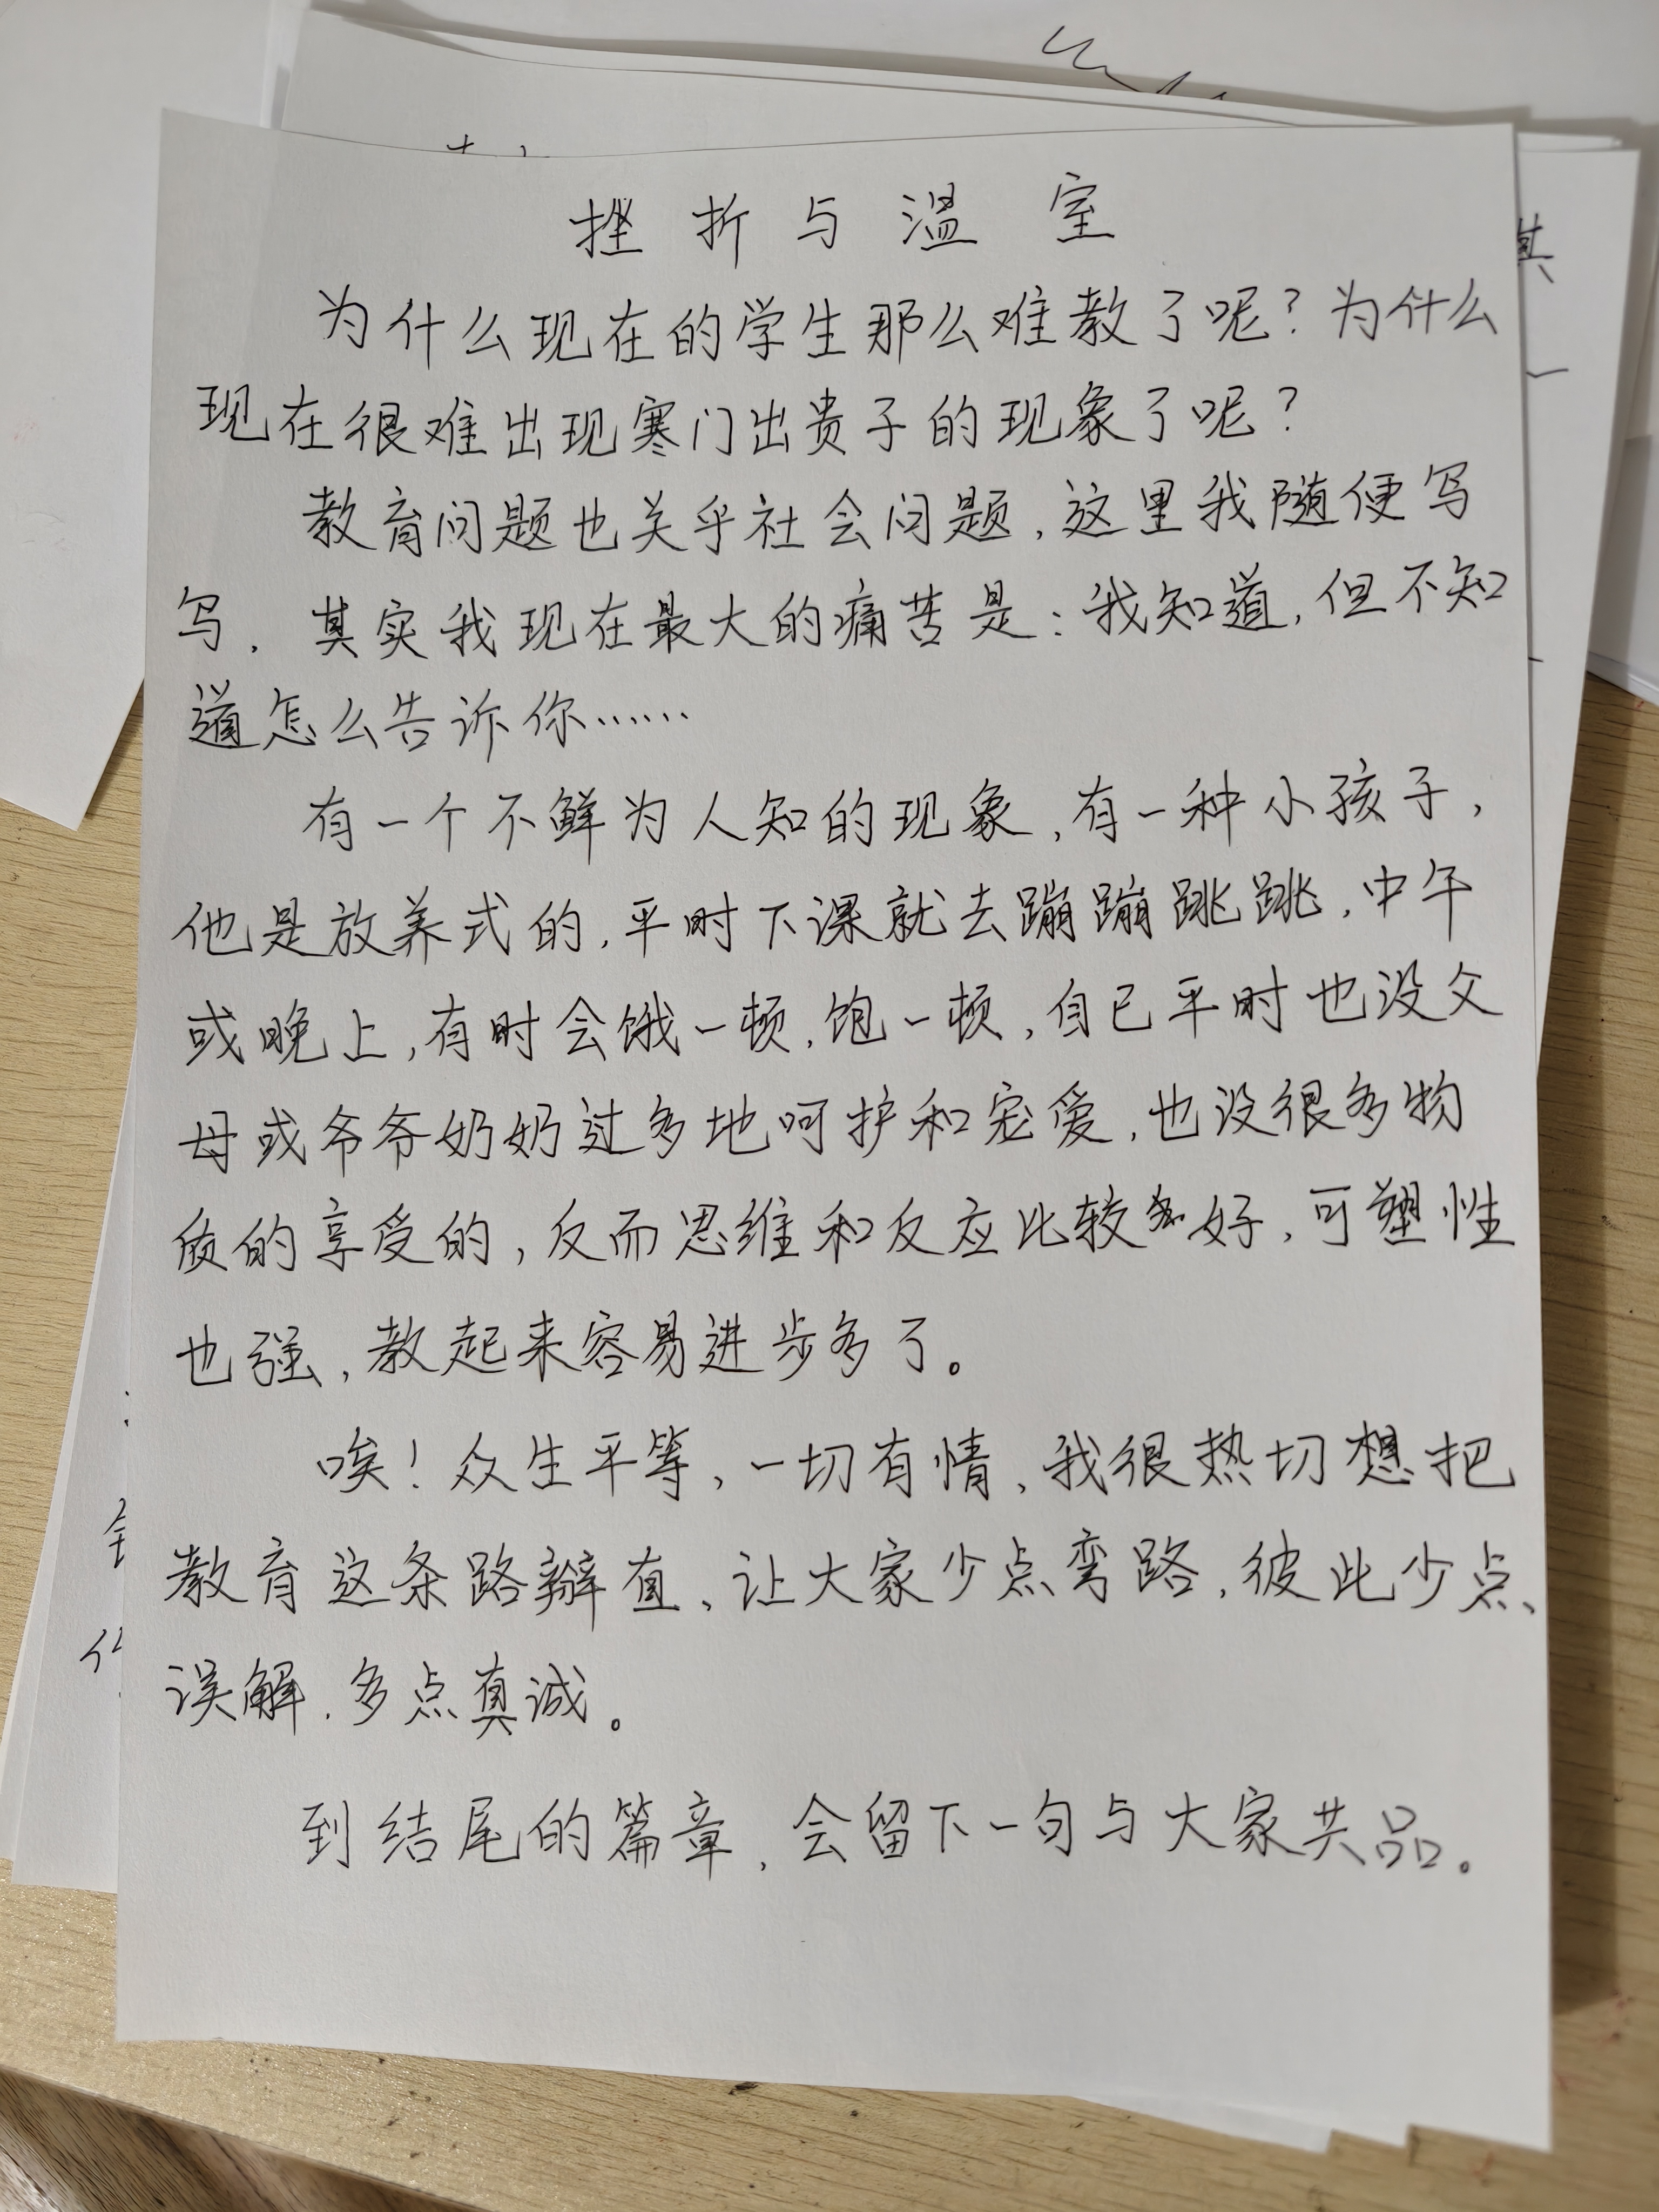 挫折与温室
为什么现在的学生那么难教了呢?为什么
现在很难出现寒门出贵子的现象了呢?
教育问题也关乎社会问题,这里我随便写
写.其实我现在最大的痛苦是:我知道,但不知
道怎么告诉你……
有一个不鲜为人知的现象,有一种小孩子,
他是放养式的,平时下课就去蹦蹦跳跳,中午
或晚上,有时会饿一顿,饱一顿,自己平时也没父
母或爷爷奶奶过多地呵护和宠爱,也没很多物
质的享受的,反而思维和反应比较好,可塑性
也强,教起来容易进步多了。
唉!众生平等,一切有情,我很热切想把
教育这条路掰直,让大家少点弯路,彼此少点
误解.多点真诚。
到结尾的篇章,会留下一句与大家共品。